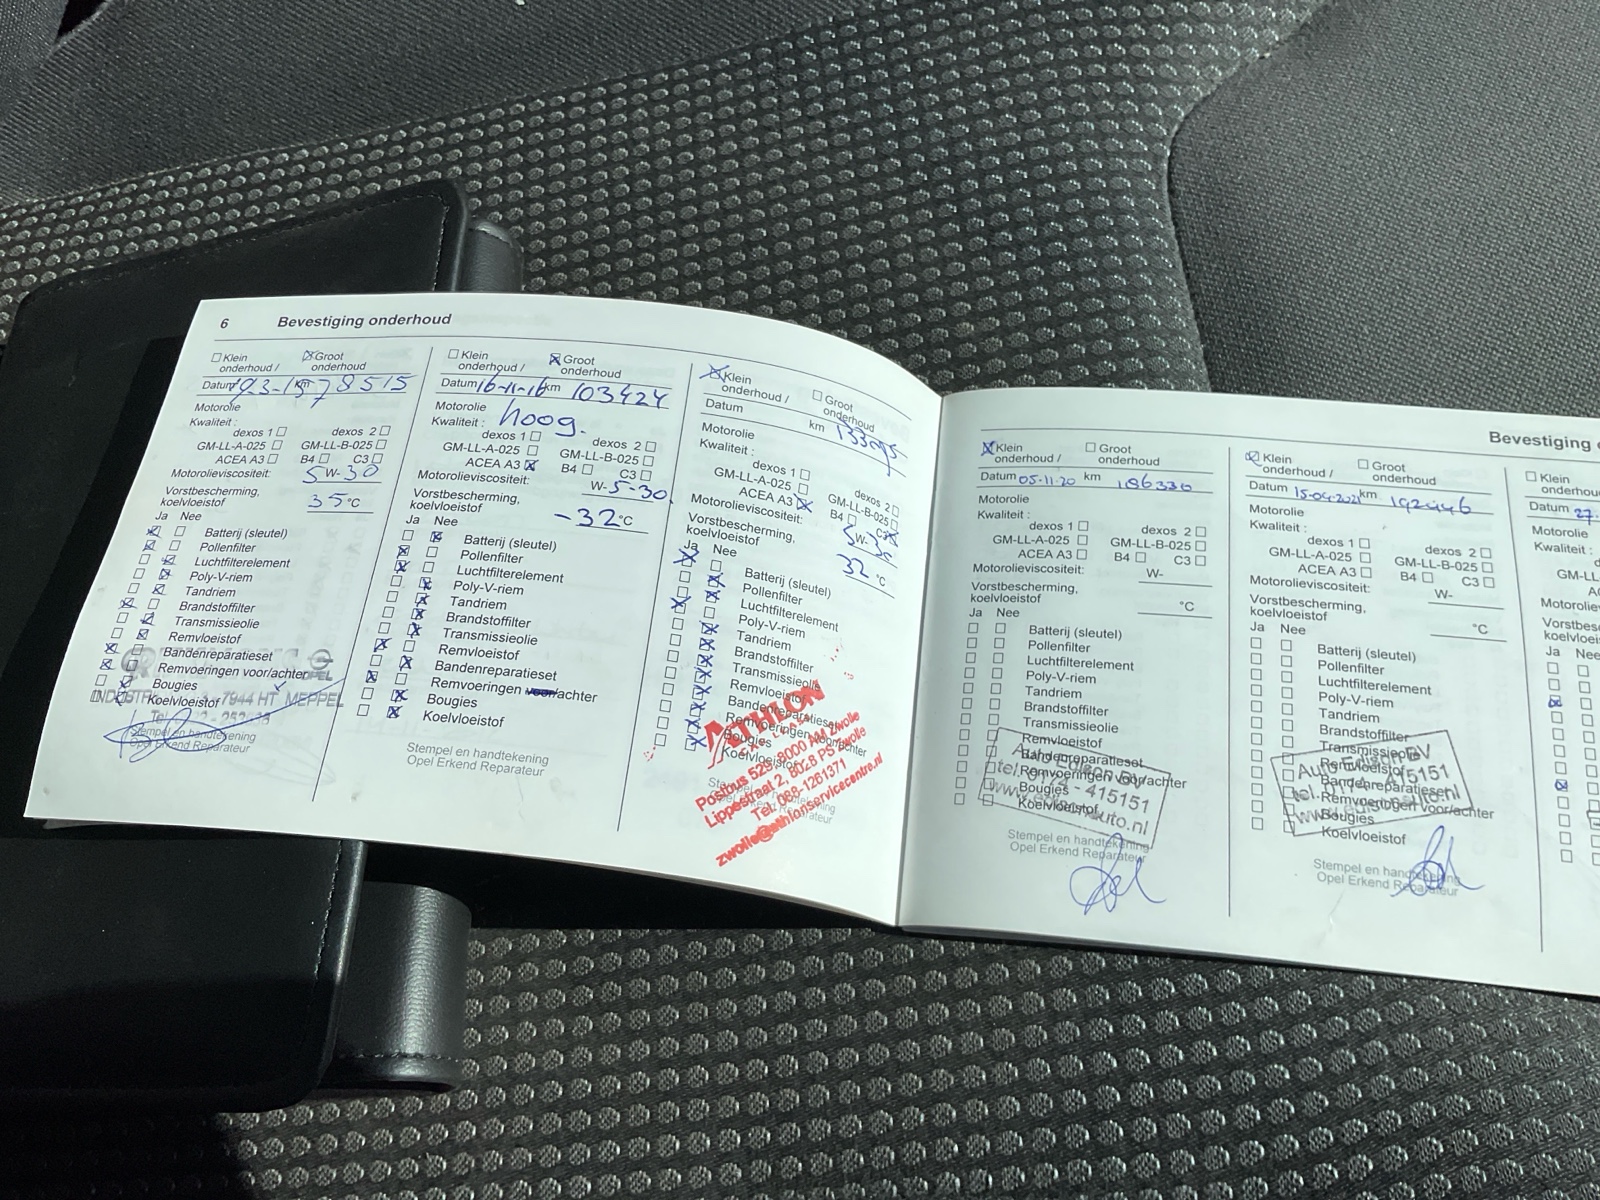 6 Bevestiging onderhoud
Klein onderhoud / Groot onderhoud
Datum km 78515
Motorolie
Kwaliteit :
dexos 1 dexos 2
GM-LL-A-025 GM-LL-B-025
ACEA A3 B4 C3
Motorolieviscositeit: 5W-30
Vorstbescherming,
koelvloeistof 35°C
Ja Nee
Batterij (sleutel)
Pollenfilter
Luchtfilterelement
Poly-V-riem
Tandriem
Brandstoffilter
Transmissieolie
Remvloeistof
Bandenreparatieset
Remvoeringen voor/achter
Bougies
Koelvloeistof
OPEL
7944 HT MEPPEL
Stempel en handtekening
Opel Erkend Reparateur
Klein onderhoud / Groot onderhoud
Datum 16-11-16 km 103424
Motorolie
Kwaliteit : hoog.
dexos 1 dexos 2
GM-LL-A-025 GM-LL-B-025
ACEA A3 B4 C3
Motorolieviscositeit: W-5-30
Vorstbescherming,
koelvloeistof -32°C
Ja Nee
Batterij (sleutel)
Pollenfilter
Luchtfilterelement
Poly-V-riem
Tandriem
Brandstoffilter
Transmissieolie
Remvloeistof
Bandenreparatieset
Remvoeringen voor/achter
Bougies
Koelvloeistof
Stempel en handtekening
Opel Erkend Reparateur
Klein onderhoud / Groot onderhoud
Datum km
Motorolie
Kwaliteit :
dexos 1 dexos 2
GM-LL-A-025 GM-LL-B-025
ACEA A3 B4 C3
Motorolieviscositeit: 5W-30
Vorstbescherming,
koelvloeistof 32°C
Ja Nee
Batterij (sleutel)
Pollenfilter
Luchtfilterelement
Poly-V-riem
Tandriem
Brandstoffilter
Transmissieolie
Remvloeistof
Bandenreparatieset
Remvoeringen voor/achter
Bougies
Koelvloeistof
ATHLON
Postbus 529, 8000 AM Zwolle
Lippestraat 2, 8028 PS Zwolle
Tel. 088-1261371
zwolle@athlonservicecentre.nl
Bevestiging
Klein onderhoud / Groot onderhoud
Datum 05-11-20 km 186330
Motorolie
Kwaliteit :
dexos 1 dexos 2
GM-LL-A-025 GM-LL-B-025
ACEA A3 B4 C3
Motorolieviscositeit: W-
Vorstbescherming,
koelvloeistof °C
Ja Nee
Batterij (sleutel)
Pollenfilter
Luchtfilterelement
Poly-V-riem
Tandriem
Brandstoffilter
Transmissieolie
Remvloeistof
Bandenreparatieset
Remvoeringen voor/achter
Bougies
Koelvloeistof
Stempel en handtekening
Opel Erkend Reparateur
Klein onderhoud / Groot onderhoud
Datum 15-04-2021 km 192446
Motorolie
Kwaliteit :
dexos 1 dexos 2
GM-LL-A-025 GM-LL-B-025
ACEA A3 B4 C3
Motorolieviscositeit: W-
Vorstbescherming,
koelvloeistof °C
Ja Nee
Batterij (sleutel)
Pollenfilter
Luchtfilterelement
Poly-V-riem
Tandriem
Brandstoffilter
Transmissieolie
Remvloeistof
Bandenreparatieset
Remvoeringen voor/achter
Bougies
Koelvloeistof
Stempel en handtekening
Opel Erkend Reparateur
Klein
Datum 27-
Motorolie
Kwaliteit :
Ja Nee